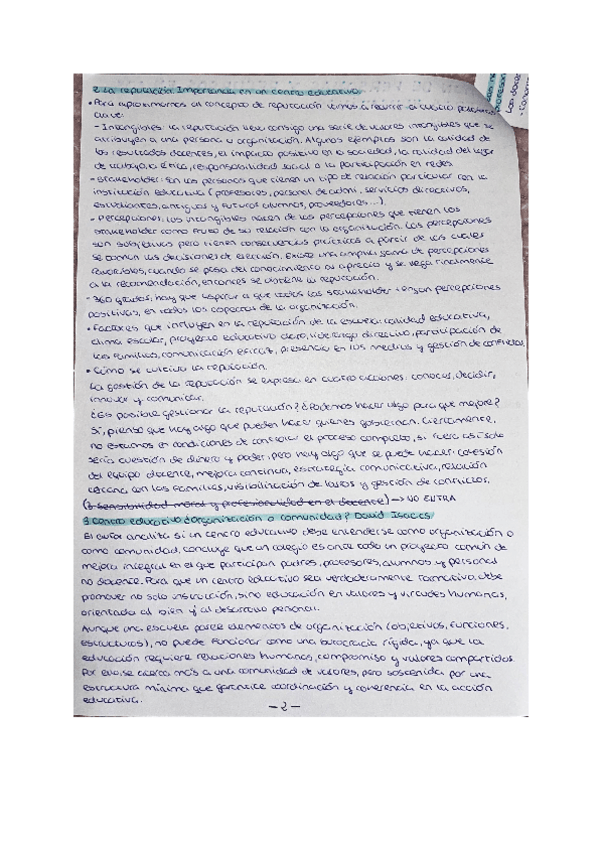 2. La reputación. Importancia en un centro educativo.
• Para aproximarnos al concepto de reputación vamos a recurrir a cuatro palabras
clave:
- Intangibles: la reputación lleva consigo una serie de valores intangibles que se
atribuyen a una persona u organización. Algunos ejemplos son la calidad de
los resultados docentes, el impacto positivo en la sociedad, la calidad del lugar
de trabajo, la ética, responsabilidad social o la participación en redes.
- Stakeholder: son las personas que tienen un tipo de relación particular con la
institución educativa (profesores, personal de admi., servicios directivos,
estudiantes, antiguos y futuros alumnos, proveedores...).
- Percepciones: los intangibles nacen de las percepciones que tienen los
stakeholder como fruto de su relación con la organización. Las percepciones
son subjetivas pero tienen consecuencias prácticas a partir de las cuales
se toman las decisiones de elección. Existe una amplia gama de percepciones
favorables, cuando se pasa del conocimiento al aprecio y se llega finalmente
a la recomendación, entonces se obtiene la reputación.
- 360 grados: hay que esperar a que todos los stakeholder tengan percepciones
positivas, en todos los aspectos de la organización.
• Factores que influyen en la reputación de la escuela: calidad educativa,
clima escolar, proyecto educativo claro, liderazgo directivo, participación de
las familias, comunicación eficaz, presencia en los medios y gestión de conflictos
• Cómo se cultiva la reputación.
La gestión de la reputación se expresa en cuatro acciones: conocer, decidir,
innovar y comunicar.
¿Es posible gestionar la reputación? ¿Podemos hacer algo para que mejore?
Sí, pienso que hay algo que pueden hacer quienes gobiernan. Ciertamente,
no estamos en condiciones de controlar el proceso completo, si fuera así solo
sería cuestión de dinero y poder, pero hay algo que se puede hacer: cohesión
del equipo docente, mejora continua, estrategia comunicativa, relación
cercana con las familias, visibilización de logros y gestión de conflictos.
(2. Sensibilidad moral y profesionalidad en el docente) → NO ENTRA
3. Centro educativo ¿Organización o comunidad? David Isaacs.
El autor analiza si un centro educativo debe entenderse como organización o
como comunidad, concluye que un colegio es ante todo un proyecto común de
mejora integral en el que participan padres, profesores, alumnos y personal
no docente. Para que un centro educativo sea verdaderamente formativo, debe
promover no solo instrucción, sino educación en valores y virtudes humanas,
orientada al bien y al desarrollo personal.
Aunque una escuela posee elementos de organización (objetivos, funciones,
estructuras), no puede funcionar como una burocracia rígida, ya que la
educación requiere relaciones humanas, compromiso y valores compartidos.
Por eso se acerca más a una comunidad de valores, pero sostenida por una
estructura mínima que garantice coordinación y coherencia en la acción
educativa.
- 2 -